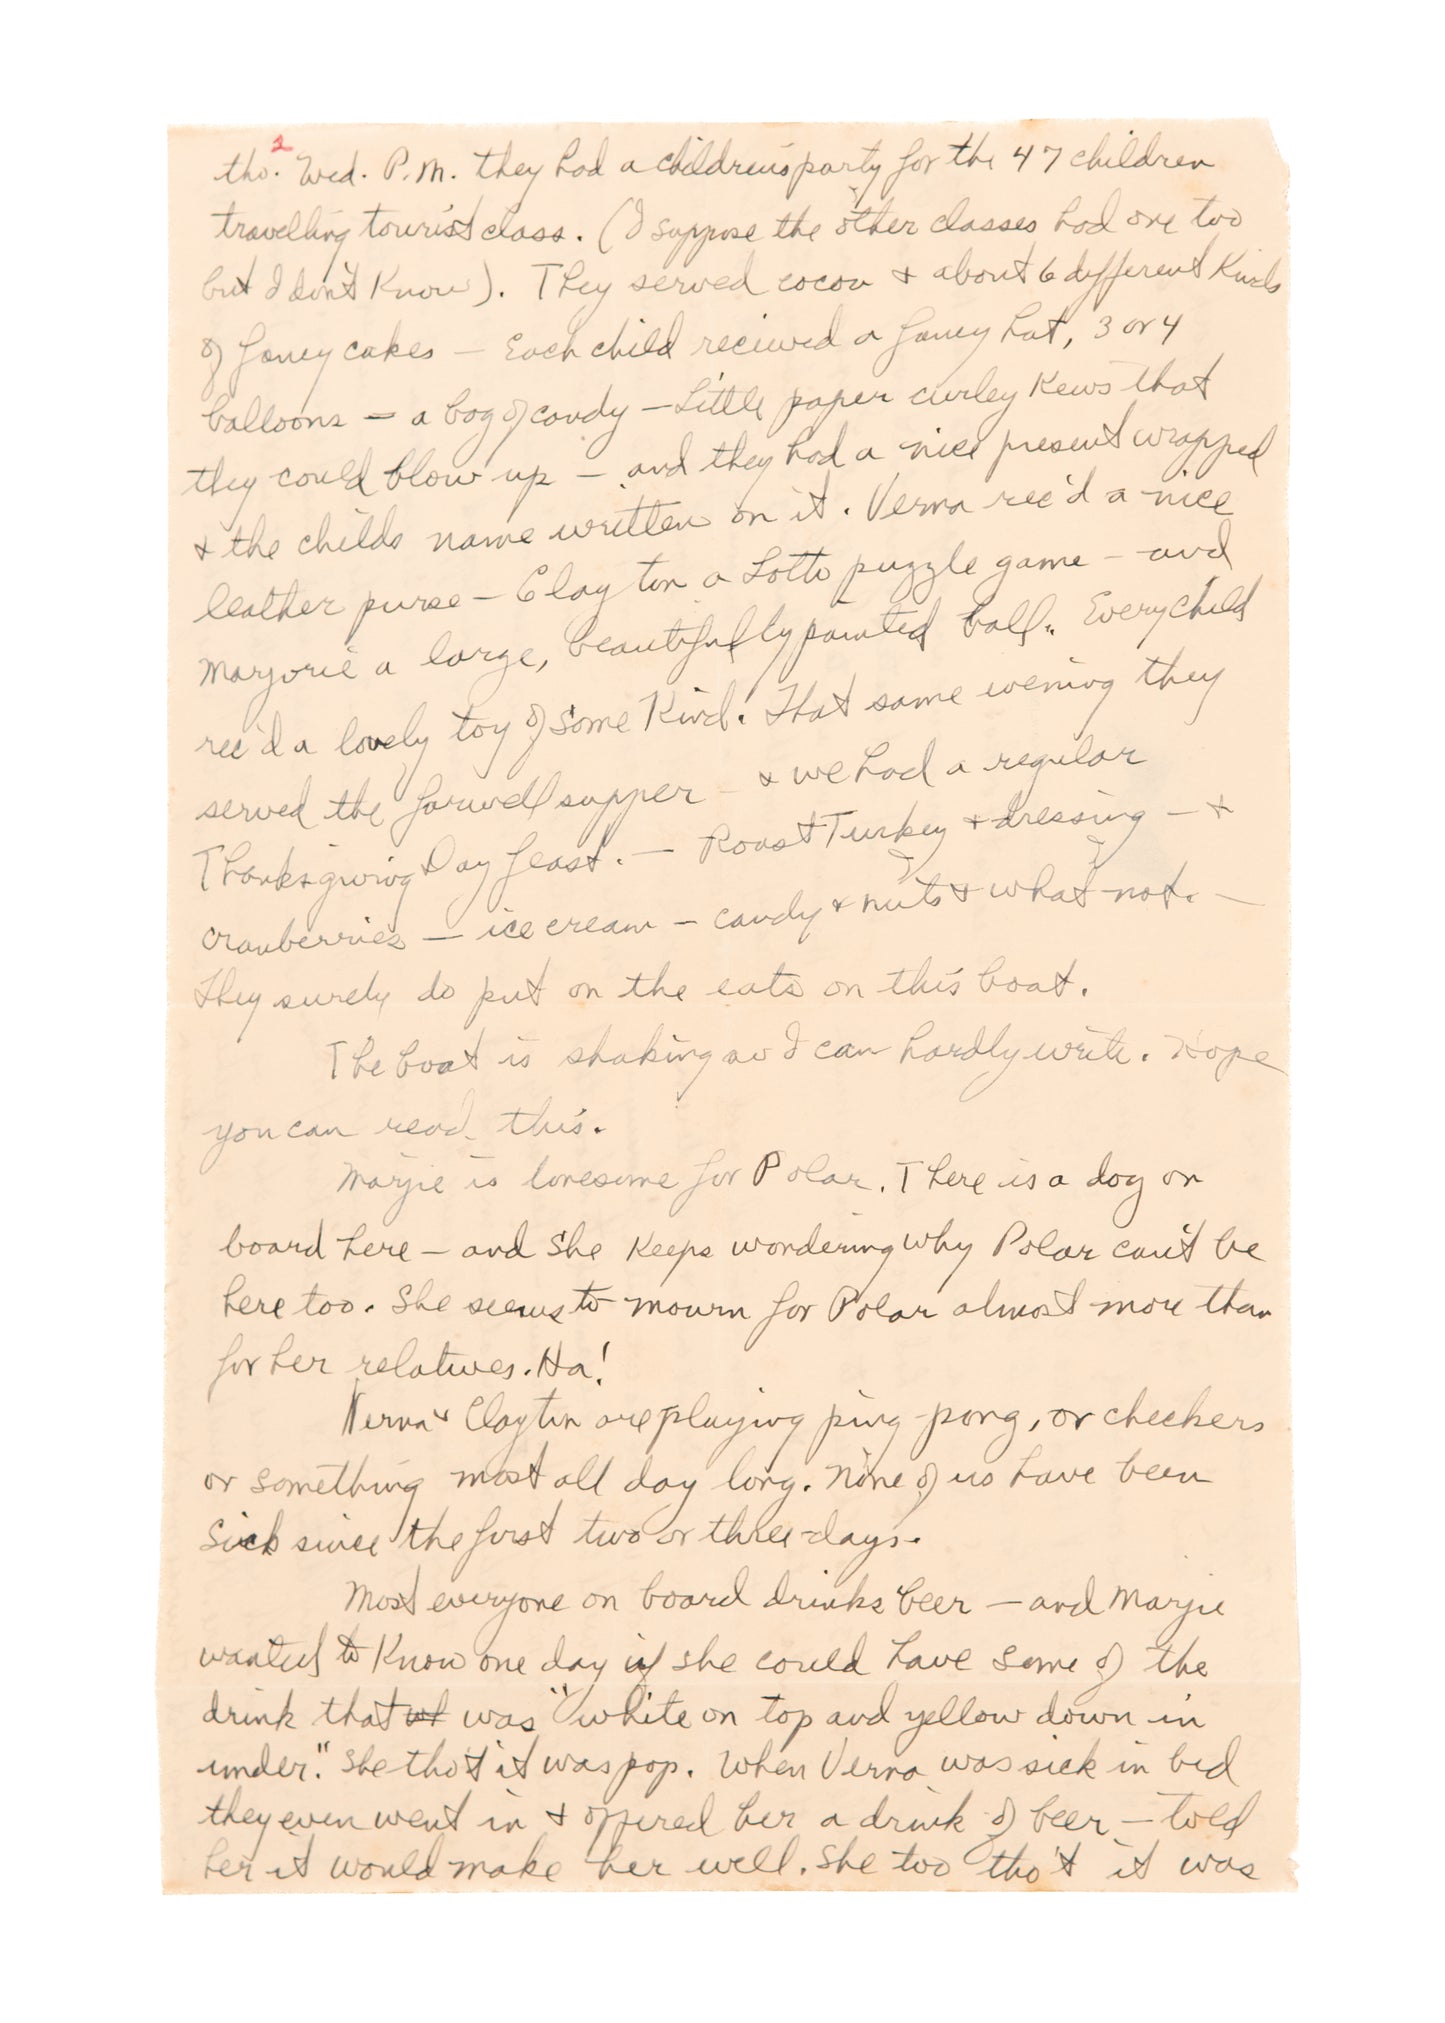 2
tho. Wed. P.M. they had a children's party for the 47 children
travelling tourist class. (I suppose the other classes had one too
but I don't know). They served cocoa & about 6 different kinds
of fancy cakes — Each child recieved a fancy hat, 3 or 4
balloons — a bag of candy — little paper curley kews that
they could blow up — and they had a nice present wrapped
& the childs name written on it. Verna rec'd a nice
leather purse — Clayton a Lotto puzzle game — and
Marjorie a large, beautifully painted ball. Every child
rec'd a lovely toy of some kind. That same evening they
served the farwell supper — & we had a regular
Thanksgiving Day feast. — Roast Turkey & dressing — &
cranberries — ice cream — candy & nuts & what-not. —
They surely do put on the eats on this boat.
The boat is shaking so I can hardly write. Hope
you can read this.
Marjie is lonesome for Polar. There is a dog on
board here — and she keeps wondering why Polar can't be
here too. She seems to mourn for Polar almost more than
for her relatives. Ha!
Verna & Clayton are playing ping-pong, or checkers
or something most all day long. None of us have been
sick since the first two or three days.
Most everyone on board drinks beer — and Marjie
wanted to know one day if she could have some of the
drink that was "white on top and yellow down in
under." She tho't it was pop. When Verna was sick in bed
they even went in & offered her a drink of beer — told
her it would make her well. She too tho't it was